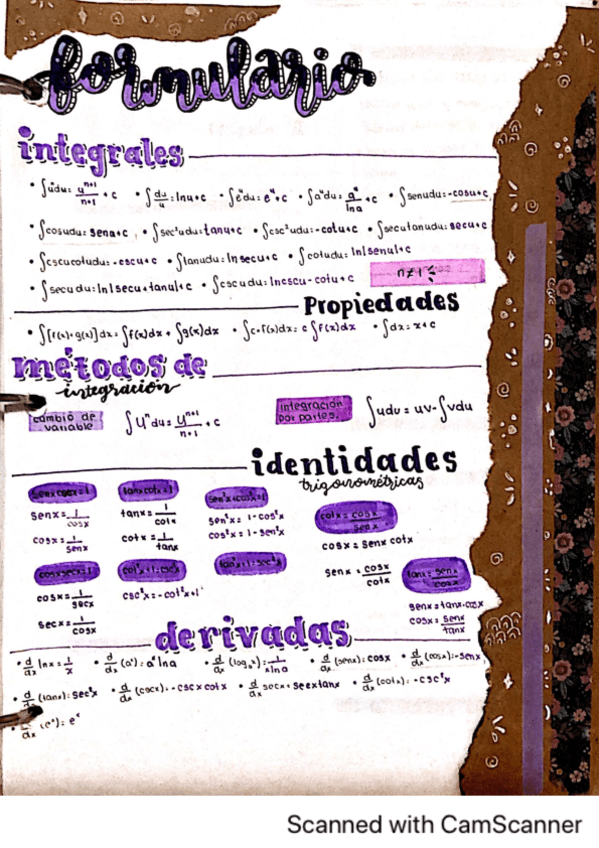 formulario
integrales
• ∫uⁿdu = uⁿ⁺¹/n+1 + c • ∫du/u = lnu+c • ∫eᵘdu = eᵘ+c • ∫aᵘdu = aᵘ/lna + c • ∫senudu = -cosu+c
• ∫cosudu = senu+c • ∫sec²udu = tanu+c • ∫csc²udu = -cotu+c • ∫secutanudu = secu+c
• ∫cscucotudu = -cscu+c • ∫tanudu = lnsecu+c • ∫cotudu = ln|senu|+c
• ∫secudu = ln|secu+tanu|+c • ∫cscudu = lncscu-cotu+c
n≠1
Propiedades
• ∫[f(x)+g(x)]dx = ∫f(x)dx + ∫g(x)dx • ∫c•f(x)dx = c∫f(x)dx • ∫dx = x+c
métodos de
integración
cambio de
variable
∫uⁿdu = uⁿ⁺¹/n+1 + c
integración
por partes.
∫udu = uv-∫vdu
identidades
trigonométricas
senx cscx=1 tanx cotx=1 sen²x+cos²x=1 cotx = cosx/senx
senx = 1/cosx tanx = 1/cotx sen²x = 1-cos²x
cscx = 1/senx cotx = 1/tanx cos²x = 1-sen²x cosx = senx cotx
cosx secx=1 cot²x+1=csc²x tan²x+1=sec²x senx = cosx/cotx tanx = senx/cosx
cosx = 1/secx csc²x = -cot²x+1
secx = 1/cosx senx = tanx•cosx
cosx = senx/tanx
derivadas
• d/dx lnx = 1/x • d/dx (aˣ) = aˣlna • d/dx (logₐx) = 1/xlna • d/dx (senx) = cosx • d/dx (cosx) = -senx
• d/dx (tanx) = sec²x • d/dx (cscx) = -cscxcotx • d/dx secx = secxtanx • d/dx (cotx) = -csc²x
d/dx (eˣ) = eˣ
Scanned with CamScanner